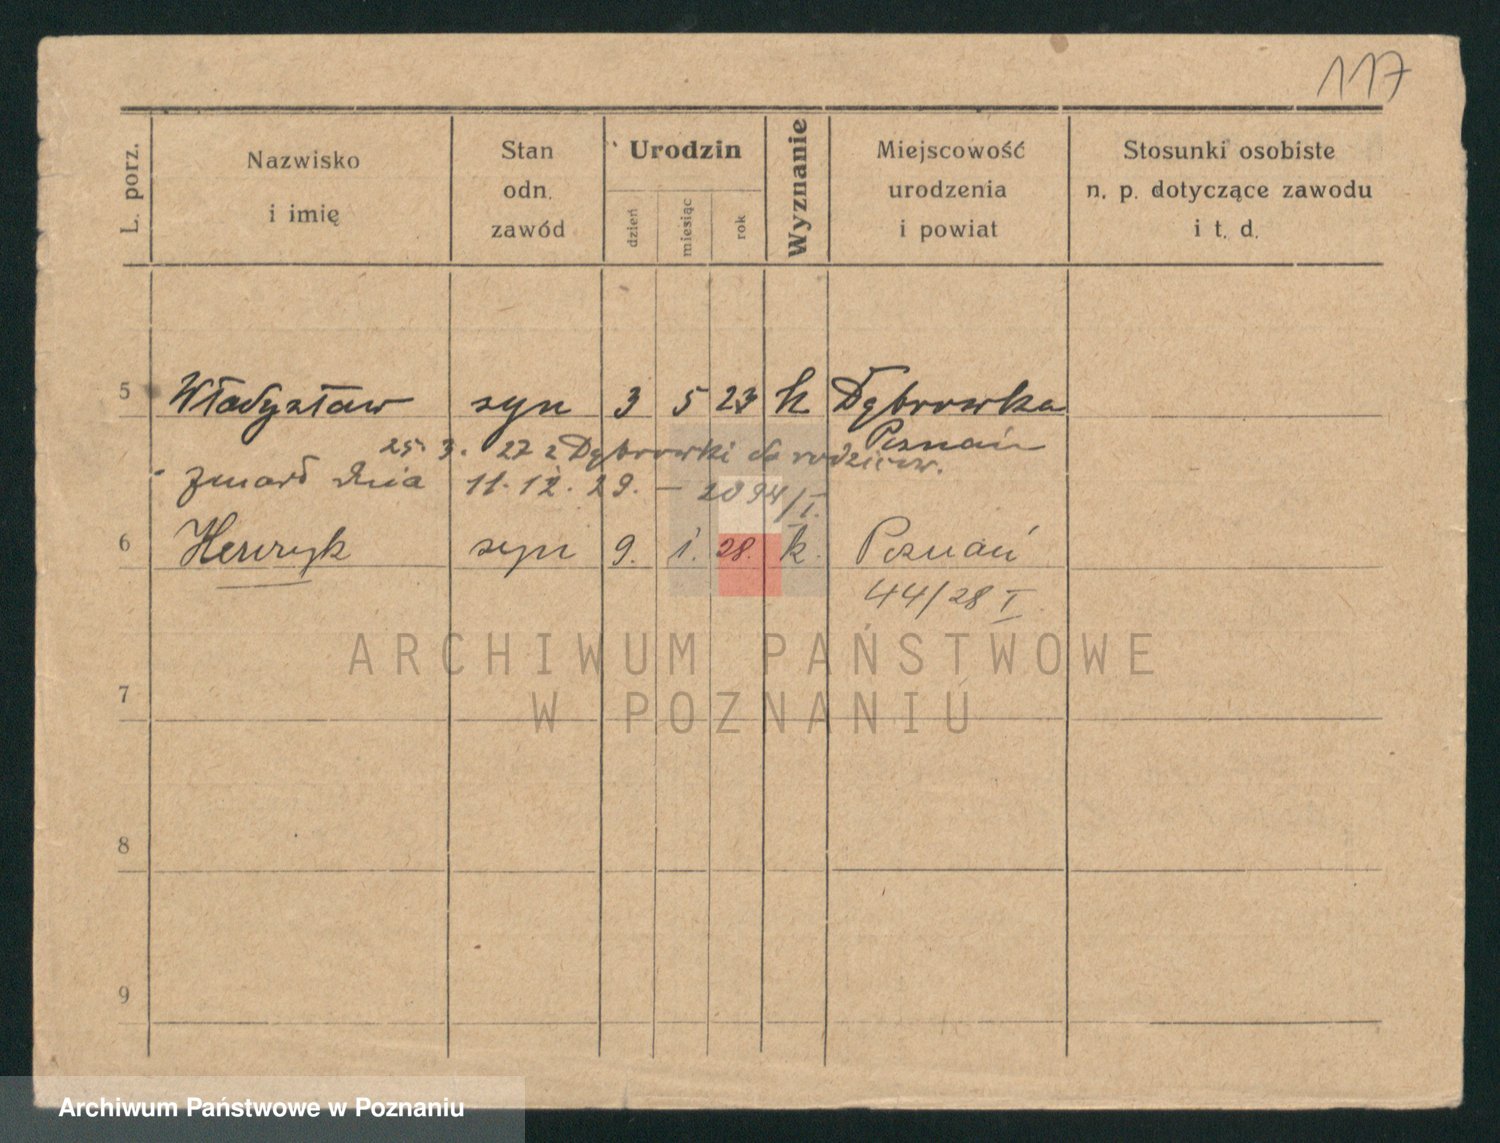 117
L. porz.
Nazwisko
i imię
Stan
odn.
zawód
Urodzin
dzień
miesiąc
rok
Wyznanie
Miejscowość
urodzenia
i powiat
Stosunki osobiste
n. p. dotyczące zawodu
i t. d.
5 Władysław syn 3 5 23 k Dąbrowka
Poznań
25. 3. 27 z Dąbrowki do rodziców.
zmarł dnia 11.12.29. — 2094/I.
6 Henryk syn 9. 1. 28. k. Poznań
44/28 I
ARCHIWUM PAŃSTWOWE
W POZNANIU
7
8
9
Archiwum Państwowe w Poznaniu